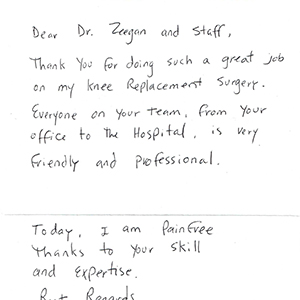 Dear Dr. Zeegan and Staff,
Thank You for doing such a great job
on my knee Replacement Surgery.
Everyone on Your Team, from Your
office to the Hospital, is very
friendly and professional.
Today, I am PainFree
Thanks to Your Skill
and Expertise.
Best Regards